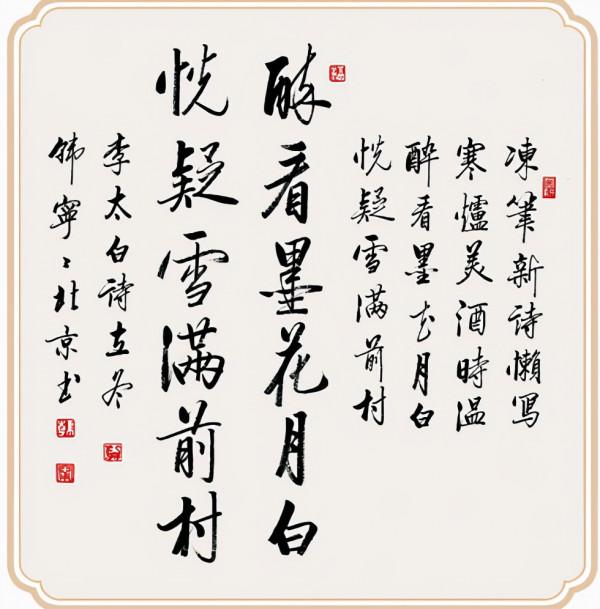 凍筆新詩懶寫
寒爐美酒時温
醉看墨花月白
恍疑雪滿前村
醉看墨花月白
恍疑雪满前村
李太白诗立冬
韩寧〻北京书